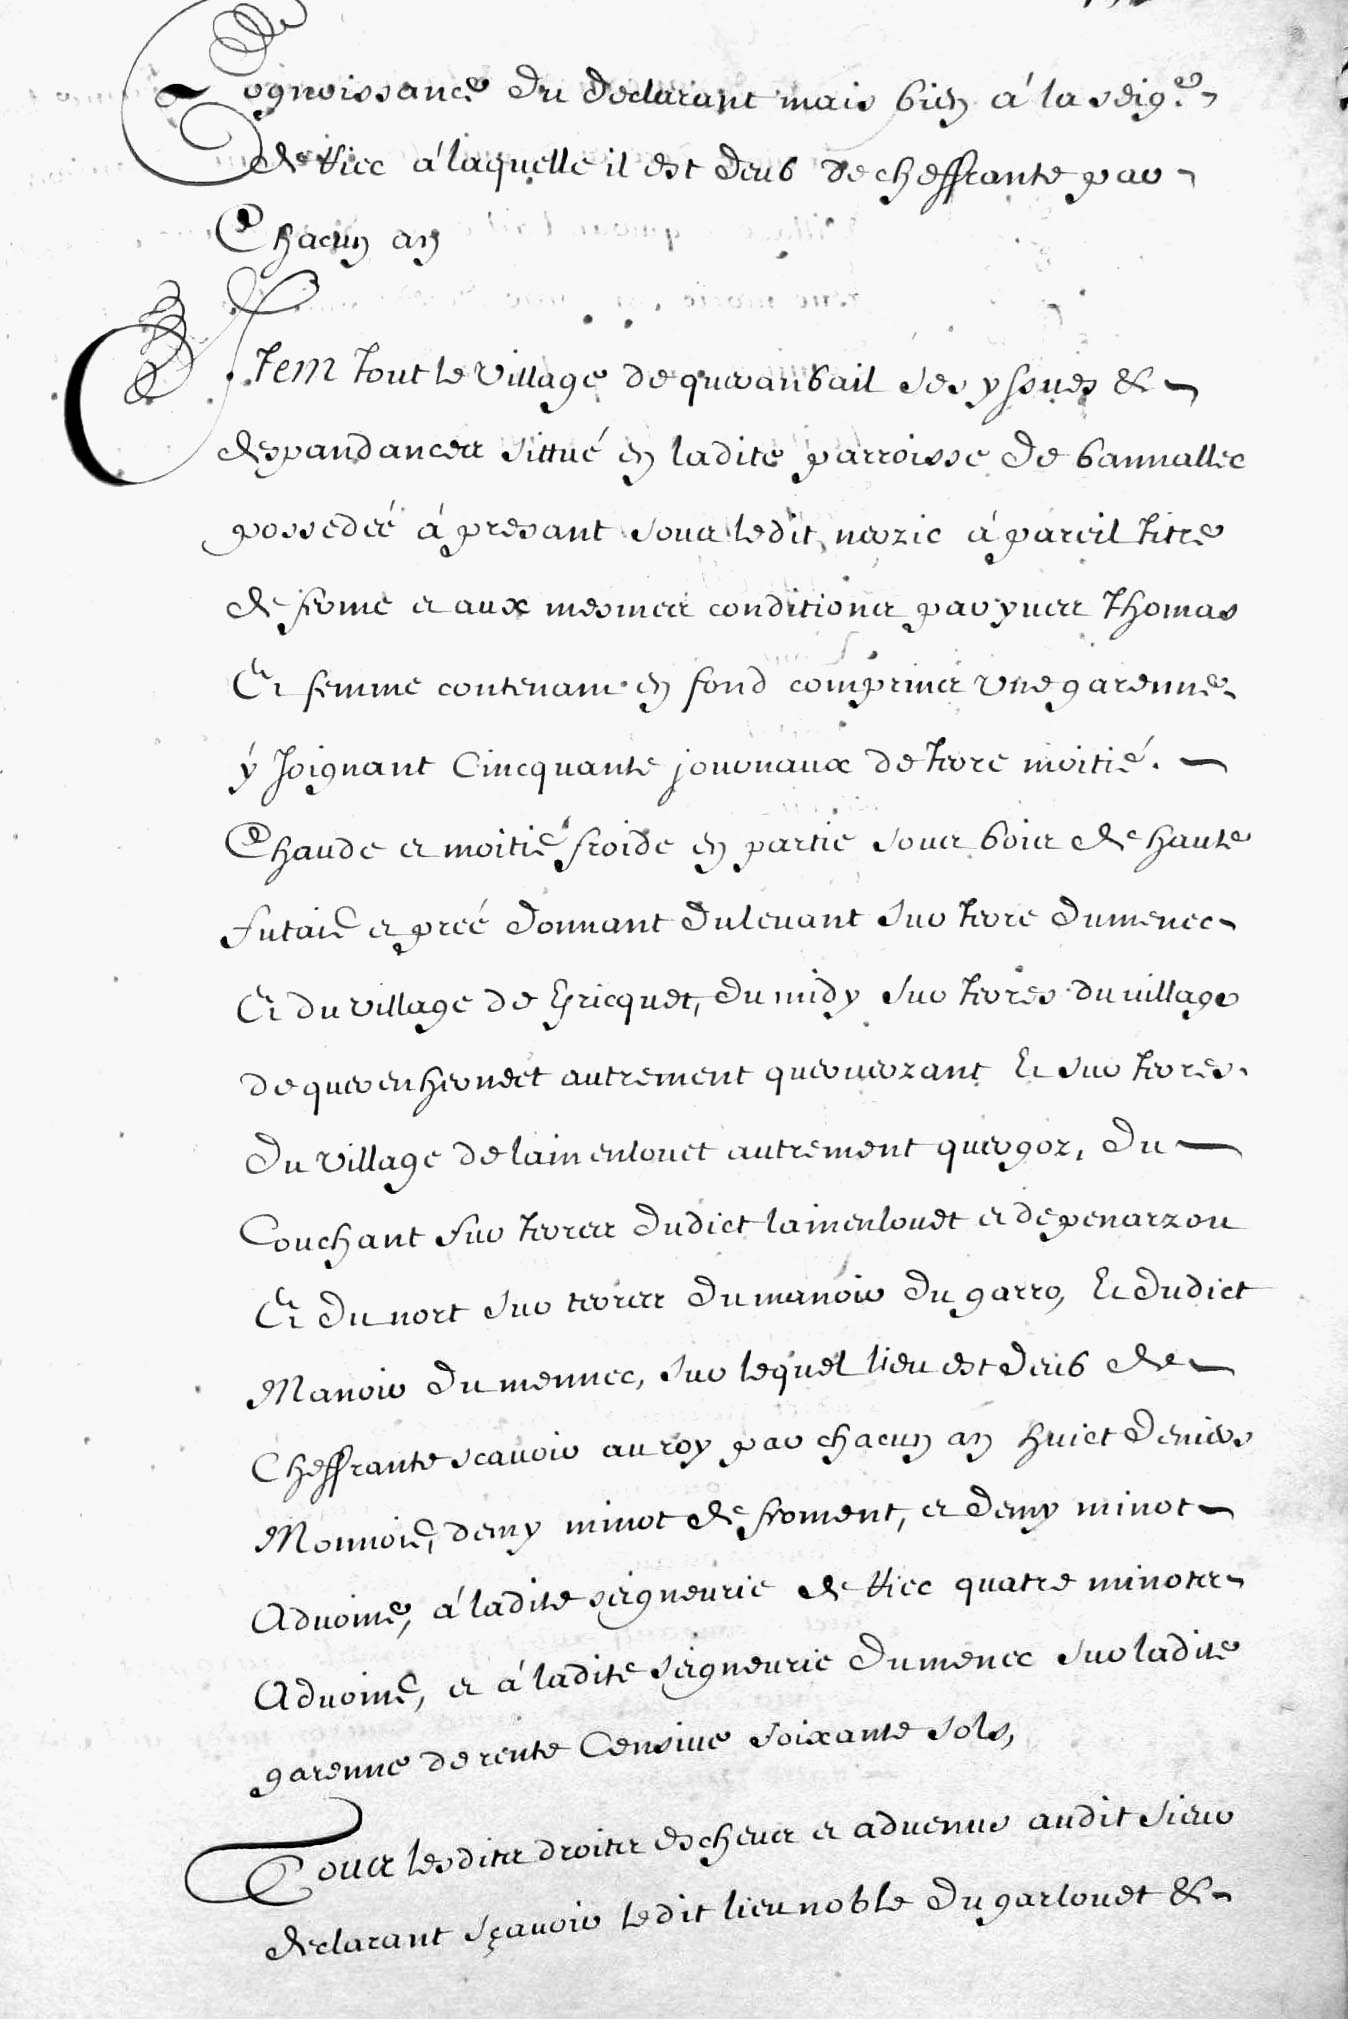 Cognoissance du declarant mais bien à la seig.e
de Tiec à laquelle il est deub de cheffrante par
Chacun an
Item tout le village de queranbail ses yssues &
despandances sittué en ladite parroisse de bannallec
possedéé à présant sous ledit nerzic à pareil titre
de ferme et aux mesmes conditions par yues Thomas
Et femme contenant en fond comprins une garenne
ÿ Joignant Cincquante jouonaux de terre moitié.
Chaude et moitié froide en partie sous bois de haute
futaie et préé donnant du levant sur terre du menec
Et du village de Gricquet, du midy sur terres du village
de querenhernect autrement querverzant Et sur terres.
Du village de lainenlouet autrement quergoz, du
Couchant sur terres dudict lainenlouet et de penarzou
Et du nort sur terres du manoir du garro, Et dudict
Manoir du mennec, sur lequel lieu est deub de
Cheffrante scavoir au roy par chacun an huict deniers
Monnoie, demy minot de froment, et demy minot
Advoine, à ladite seigneurie de Tiec quatre minots
Advoine, et à ladite seigneurie du menec sur ladite
garenne de rente Censive soixante sols,
Tous lesdits droits escheus et advenus audit sieur
declarant sçavoir ledit lieu noble du garlouet &